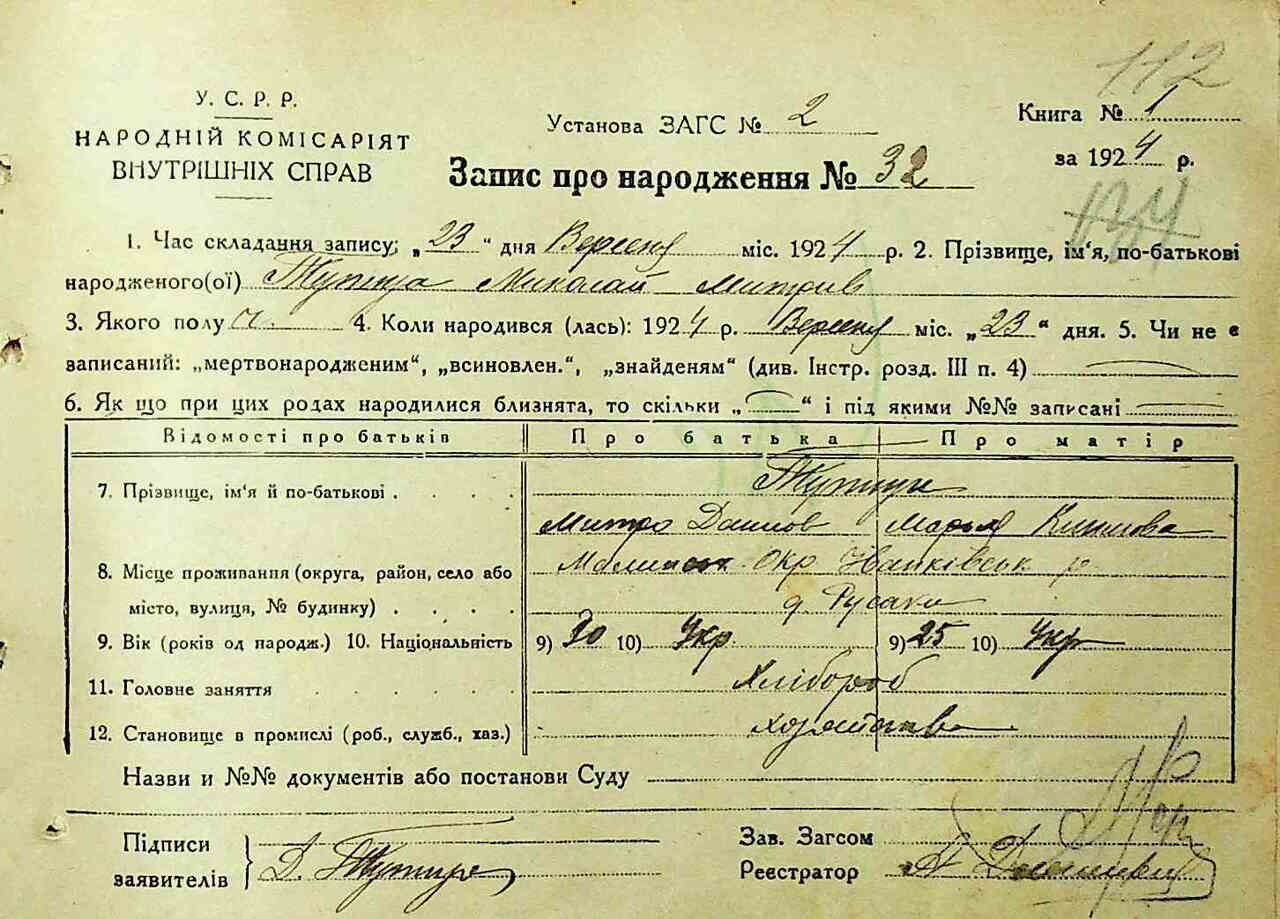 112
У. С. Р. Р.
НАРОДНІЙ КОМІСАРІЯТ
ВНУТРІШНІХ СПРАВ
Установа ЗАГС № 2
Книга № 1
за 1924 р.
Запис про народження № 32
1. Час складання запису: „23“ дня Вересня міс. 1924 р. 2. Прізвище, ім‘я, по-батькові
народженого(ої) Миколай Митрів
3. Якого полу ч. 4. Коли народився (лась): 1924 р. Вересня міс. „23“ дня. 5. Чи не є
записаний: „мертвонародженим“, „всиновлен.“, „знайденям“ (див. Інстр. розд. III п. 4)
6. Як що при цих родах народилися близнята, то скільки „ “ і під якими №№ записані
Відомості про батьків Про батька Про матір
7. Прізвище, ім‘я й по-батькові
Митро Данилов Марья
8. Місце проживання (округа, район, село або Окр р
місто, вулиця, № будинку) д. Русаки
9. Вік (років од народж.) 10. Національність 9) 30 10) Укр. 9) 25 10) Укр
11. Головне заняття Хлібороб
12. Становище в промислі (роб., служб., хаз.)
Назви и №№ документів або постанови Суду
Підписи
заявителів
Зав. Загсом
Реєстратор